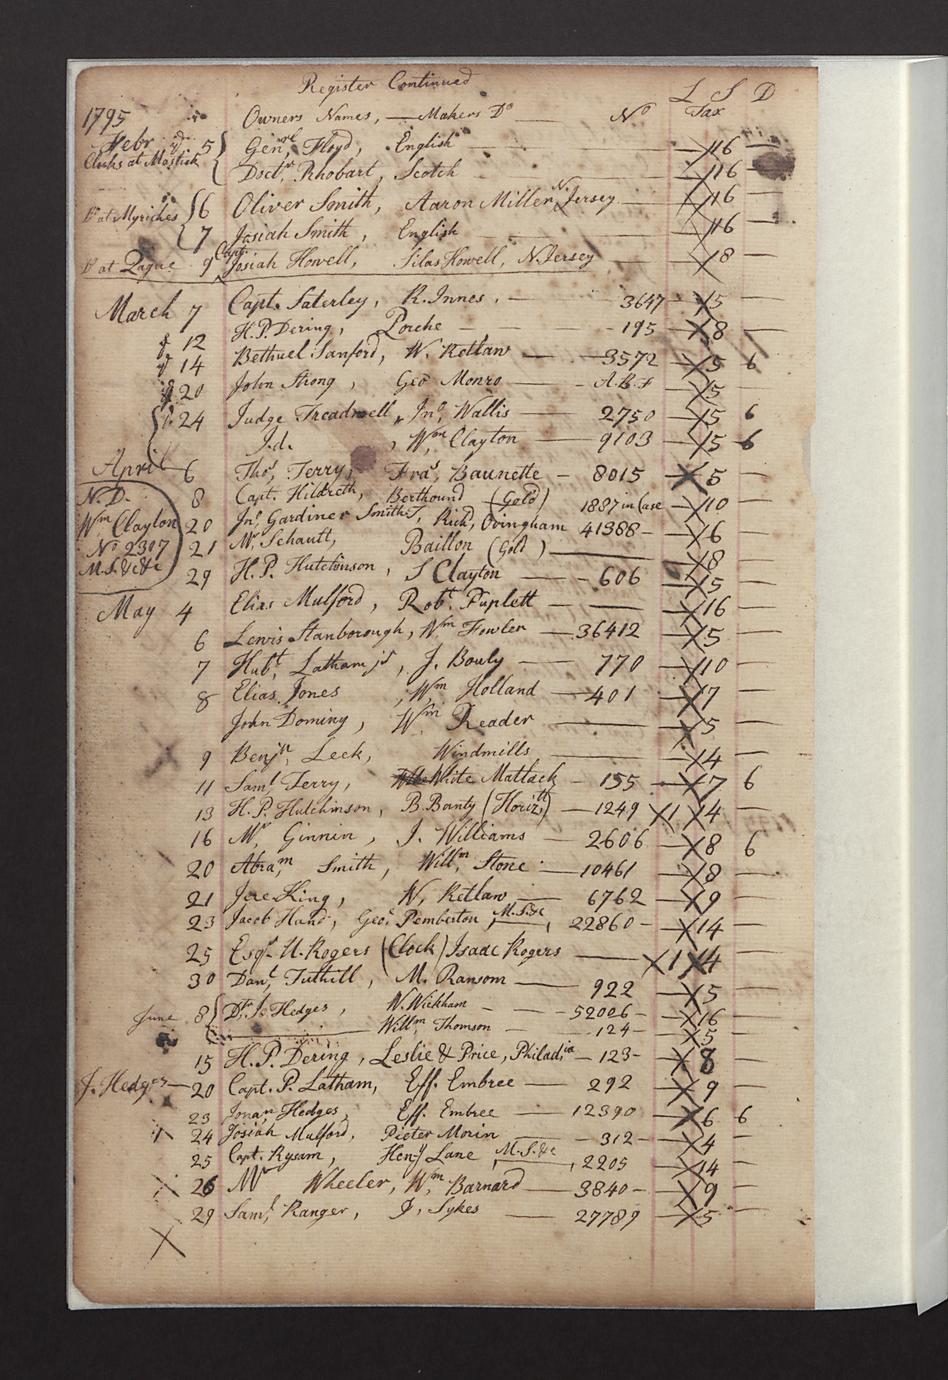 Register Continued
L S D
1795 Owners Names, — Makers Do — No Tax
Febr 5 Genrl Floyd, English — 16
Clocks at Mastick Doctr Rhobart, Scotch — 16
Do at Myriches 6 Oliver Smith, Aaron Miller N. Jersey — 16
7 Josiah Smith, English — 16
Do at 9 Capt. Josiah Howell, Silas Howell, N. Jersey — 18
March 7 Capt. Saterley, R. Innes, — 3647 — 5 —
12 H. P. Dering, Porche — 195 — 8 —
14 Bethuel Sanford, W. Retlaw — 3572 — 5 6
20 John Strong, Geo Monro — 5 —
24 Judge Treadwell, Jno Wallis — 2750 — 5 6
J.d. , Wm Clayton — 9103 — 5 6
April 6 Thos, Terry, Fras, Baunette — 8015 — 5 —
N.D. 8 Capt. Hildreth, Berthound (Gold) 1887 in Case — 10 —
Wm Clayton 20 Jno Gardiner Smith T, Richd, Ovingham 41388 — 6 —
No 2307 21 Mr Schautt, Baillon (Gold) — 8 —
M.S. &c &c 29 H. P. Hutchinson, S Clayton — 606 — 5 —
May 4 Elias Mulford, Robt. Puplett — 16 —
6 Lewis Stanborough, Wm Fowler — 36412 — 5 —
7 Hubt. Latham jr, J. Bouly — 770 — 10 —
8 Elias Jones , Wm Holland — 401 — 17 —
John Dominy, Wm Reader — 5 —
9 Benjn Leek, Windmills — 14 —
11 Saml. Terry, White Matlack — 155 — 7 6
13 H. P. Hutchinson, B. Banty (Horizl) — 1249 1 14 —
16 Mr Ginnin, J. Williams — 2606 — 8 6
20 Abram Smith, Willm, Stone — 10461 — 8 —
21 Jere King, W, Retlaw — 6762 — 9 —
23 Jacob Hand, Geo. Pemberton, M.S. &c, 22860 — 14 —
25 Esqr. U. Rogers (Clock) Isaac Rogers — 1 4 —
30 Danl. Tuthill, M. Ransom — 922 — 5 —
June 8 Dr. J. Hedges, W. Wickham — 52006 — 16 —
Willm Thomson — 124 — 5 —
15 H. P. Dering, Leslie & Price, Philadia — 123 — 8 —
J. Hedges — 20 Capt. P. Latham, Eff. Embree — 292 — 9 —
23 Jonan Hedges, Eff. Embree — 12390 — 6 6
24 Josiah Mulford, Pieter Morin — 312 — 4 —
25 Capt. Rysam, Heny Lane, M.S. &c, 2205 — 14 —
26 Mr Wheeler, Wm Barnard — 3840 — 9 —
29 Saml, Ranger, J, Sykes — 27789 — 5 —